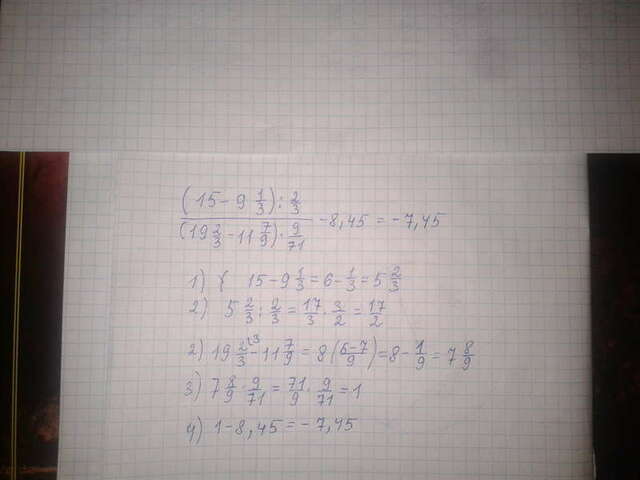 (15 - 9 1/3) : 2/3
(19 2/3 - 11 7/9) · 9/71 - 8,45 = -7,45
1) { 15 - 9 1/3 = 6 - 1/3 = 5 2/3
2) 5 2/3 : 2/3 = 17/3 · 3/2 = 17/2
2) 19 2/3 \3 - 11 7/9 = 8 (6-7/9) = 8 - 1/9 = 7 8/9
3) 7 8/9 · 9/71 = 71/9 · 9/71 = 1
4) 1 - 8,45 = -7,45